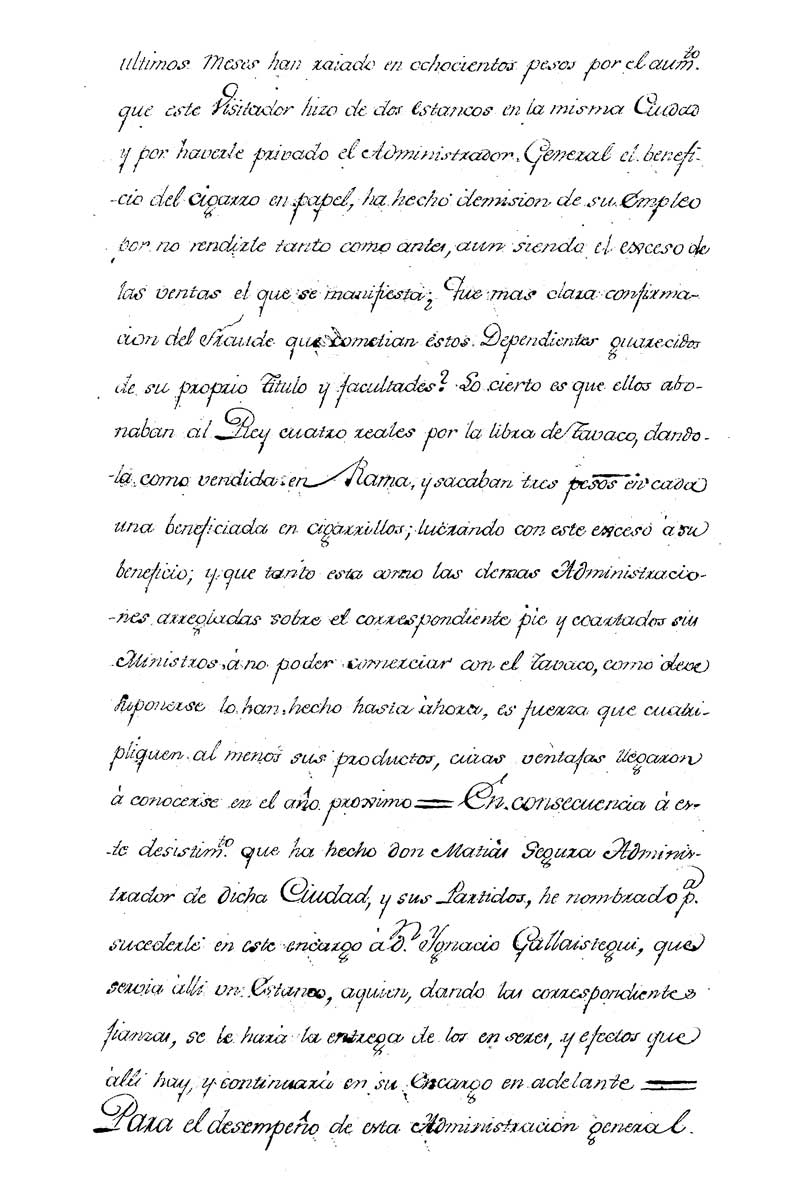 ultimos Meses han raiado en ochocientos pesos por el aum.to
que este Visitador hizo de dos Estancos en la misma Ciudad
y por haverle privado el Administrador General el benefi-
-cio del cigarro en papel, ha hecho demision de su Empleo
por no rendirle tanto como antes, aun siendo el exceso de
las ventas el que se manifiesta; Que mas clara confirma-
cion del fraude que cometian éstos Dependientes guarecidos
de su proprio Titulo y facultades? Lo cierto es que ellos abo-
naban al Rey cuatro reales por la libra de Tavaco, dando-
-la como vendida en Rama, y sacaban tres pesos en cada
una beneficiada en cigarrillos; lucrando con este exceso à su
beneficio; y que tanto esta como las demas Administracio-
-nes arregladas sobre el correspondiente pie y coartados sus
Ministros à no poder comerciar con el Tavaco, como deve
suponerse lo han hecho hasta àhora, es fuerza que cuatri-
pliquen al menos sus productos, cuias ventajas llegaron
à conocerse en el año proximo = En consecuencia à es-
-te desistim.to que ha hecho don Matias Segura Adminis-
trador de dicha Ciudad, y sus Partidos, he nombrado p.a
sucederle en este encargo à D.n Ygnacio Gallaistegui, que
servia àlli un Estanco, aquien, dando las correspondientes
fianzas, se le harà la entrega de los en seres, y efectos que
àlli hay, y continuarà en su Encargo en adelante =
Para el desempeño de esta Administracion general.